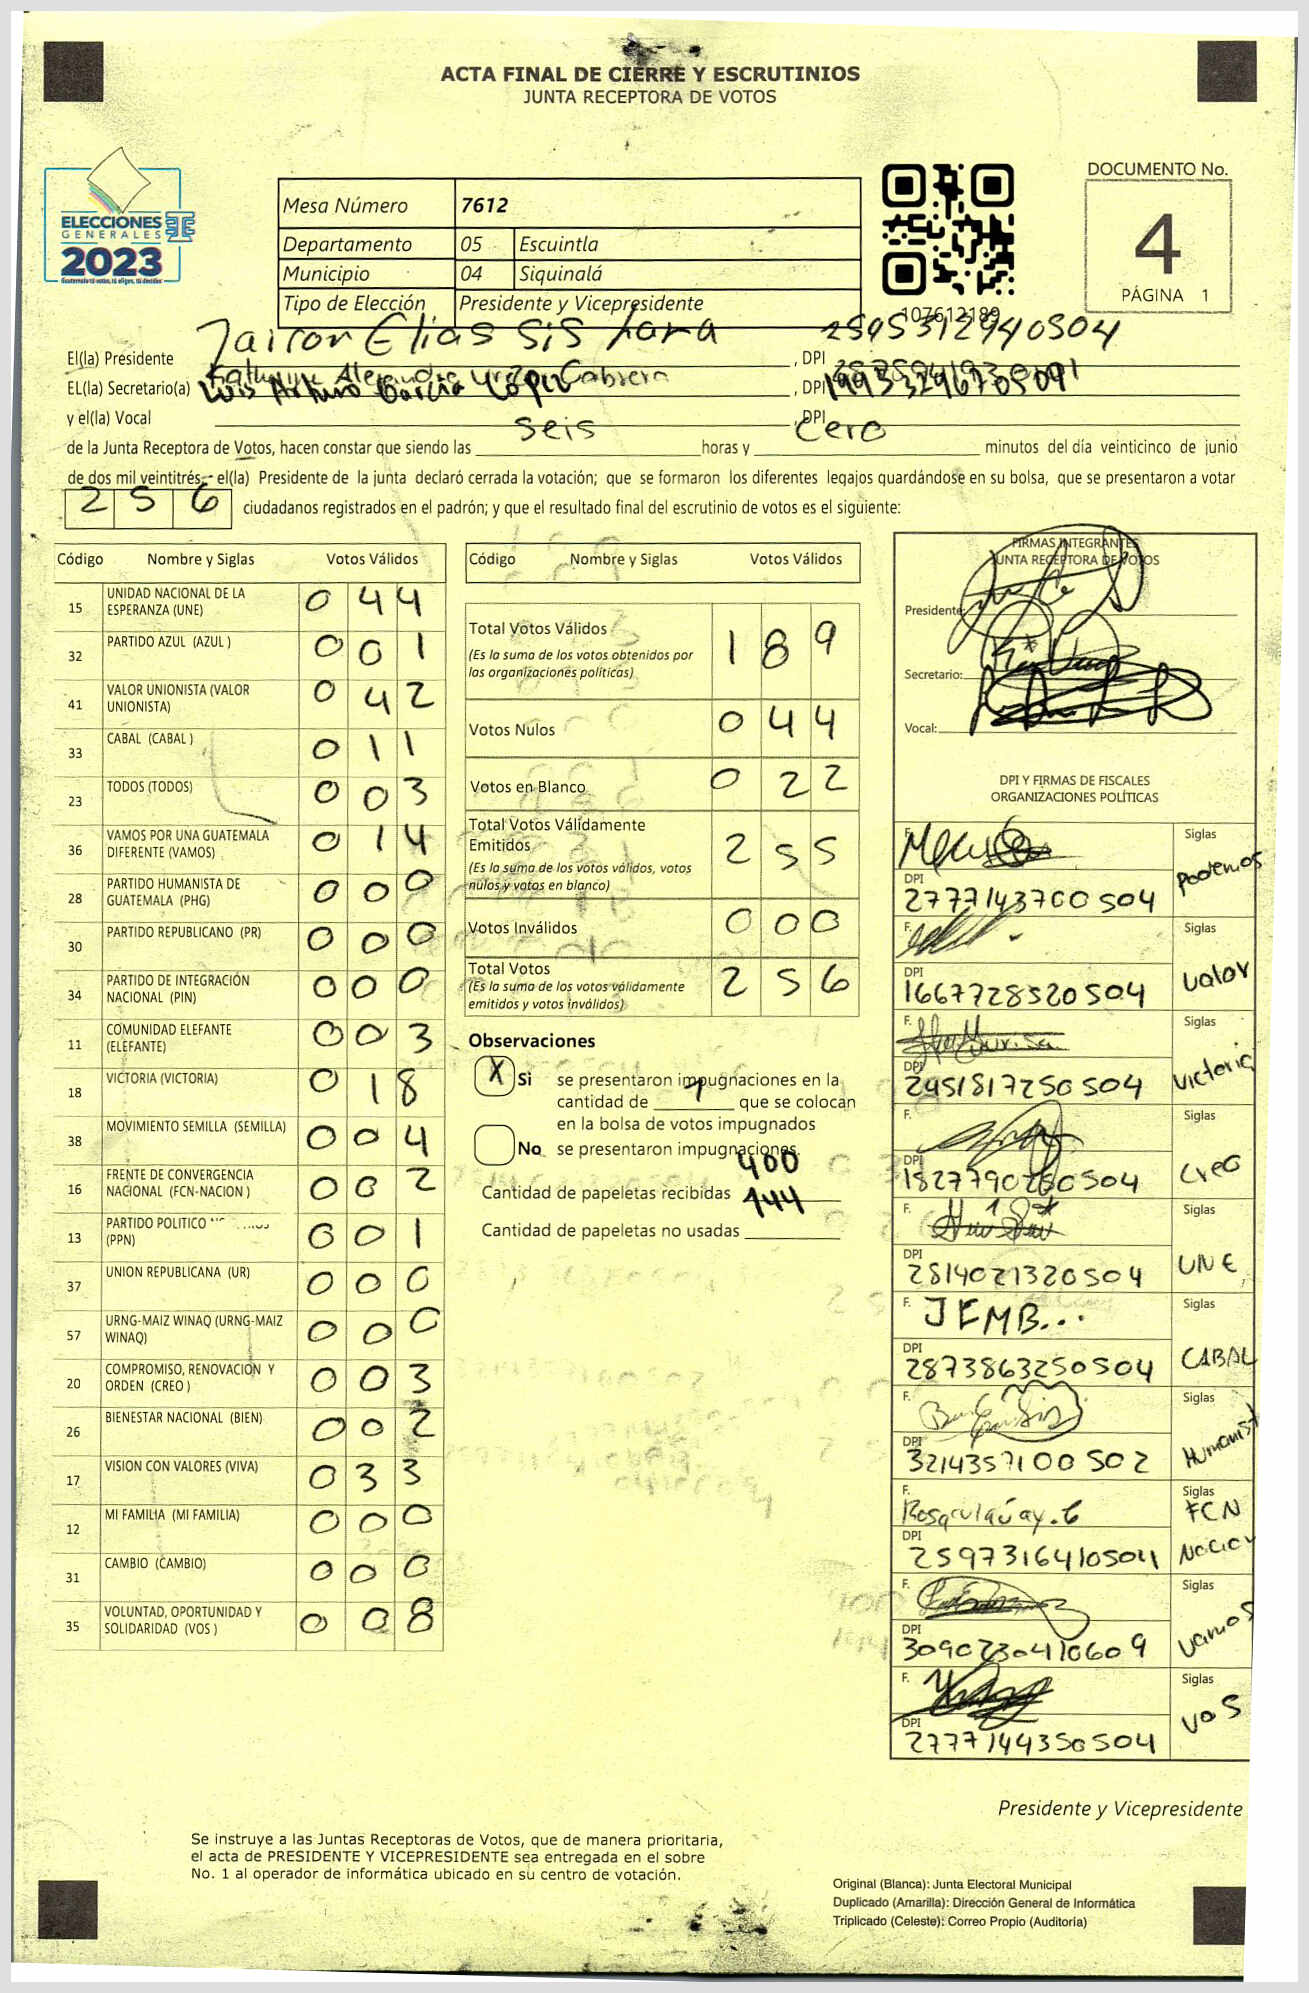 ACTA FINAL DE CIERRE Y ESCRUTINIOS
JUNTA RECEPTORA DE VOTOS
ELECCIONES
GENERALES
2023
Guatemala tú votas, tú eliges, tú decides
Mesa Número 7612
Departamento 05 Escuintla
Municipio 04 Siquinalá
Tipo de Elección Presidente y Vicepresidente
107612189
DOCUMENTO No.
4
PÁGINA 1
El(la) Presidente Jairon Elias Sis Lara, DPI 2595312940504
EL(la) Secretario(a) Luis Arturo García López, DPI
y el(la) Vocal , DPI
de la Junta Receptora de Votos, hacen constar que siendo las seis horas y cero minutos del día veinticinco de junio
de dos mil veintitrés, el(la) Presidente de la junta declaró cerrada la votación; que se formaron los diferentes legajos guardándose en su bolsa, que se presentaron a votar
256 ciudadanos registrados en el padrón; y que el resultado final del escrutinio de votos es el siguiente:
Código Nombre y Siglas Votos Válidos
15 UNIDAD NACIONAL DE LA ESPERANZA (UNE) 0 4 4
32 PARTIDO AZUL (AZUL ) 0 0 1
41 VALOR UNIONISTA (VALOR UNIONISTA) 0 4 2
33 CABAL (CABAL ) 0 1 1
23 TODOS (TODOS) 0 0 3
36 VAMOS POR UNA GUATEMALA DIFERENTE (VAMOS) 0 1 4
28 PARTIDO HUMANISTA DE GUATEMALA (PHG) 0 0 0
30 PARTIDO REPUBLICANO (PR) 0 0 0
34 PARTIDO DE INTEGRACIÓN NACIONAL (PIN) 0 0 0
11 COMUNIDAD ELEFANTE (ELEFANTE) 0 0 3
18 VICTORIA (VICTORIA) 0 1 8
38 MOVIMIENTO SEMILLA (SEMILLA) 0 0 4
16 FRENTE DE CONVERGENCIA NACIONAL (FCN-NACION ) 0 0 2
13 PARTIDO POLITICO (PPN) 0 0 1
37 UNION REPUBLICANA (UR) 0 0 0
57 URNG-MAIZ WINAQ (URNG-MAIZ WINAQ) 0 0 0
20 COMPROMISO, RENOVACIÓN Y ORDEN (CREO ) 0 0 3
26 BIENESTAR NACIONAL (BIEN) 0 0 2
17 VISION CON VALORES (VIVA) 0 3 3
12 MI FAMILIA (MI FAMILIA) 0 0 0
31 CAMBIO (CAMBIO) 0 0 0
35 VOLUNTAD, OPORTUNIDAD Y SOLIDARIDAD (VOS ) 0 0 8
Código Nombre y Siglas Votos Válidos
Total Votos Válidos 1 8 9
(Es la suma de los votos obtenidos por las organizaciones políticas)
Votos Nulos 0 4 4
Votos en Blanco 0 2 2
Total Votos Válidamente Emitidos 2 5 5
(Es la suma de los votos válidos, votos nulos y votos en blanco)
Votos Inválidos 0 0 0
Total Votos 2 5 6
(Es la suma de los votos válidamente emitidos y votos inválidos)
Observaciones
X Si se presentaron impugnaciones en la
cantidad de 1 que se colocan
en la bolsa de votos impugnados
No se presentaron impugnaciones.
Cantidad de papeletas recibidas 400
Cantidad de papeletas no usadas 144
FIRMAS INTEGRANTES
JUNTA RECEPTORA DE VOTOS
Presidente:
Secretario:
Vocal:
DPI Y FIRMAS DE FISCALES
ORGANIZACIONES POLÍTICAS
F. Siglas Podemos
DPI 2777143700504
F. Siglas Valor
DPI 1667728520504
F. Siglas Victoria
DPI 2451817250504
F. Siglas Creo
DPI 1827790260504
F. Siglas UNE
DPI 2814021320504
F. JEMB... Siglas CABAL
DPI 2873863250504
F. Siglas Humanist
DPI 3214357100502
F. Siglas FCN Nacion
DPI 2597316410504
F. Siglas Vamos
DPI 3090230410609
F. Siglas VOS
DPI 2777144350504
Presidente y Vicepresidente
Se instruye a las Juntas Receptoras de Votos, que de manera prioritaria,
el acta de PRESIDENTE Y VICEPRESIDENTE sea entregada en el sobre
No. 1 al operador de informática ubicado en su centro de votación.
Original (Blanca): Junta Electoral Municipal
Duplicado (Amarilla): Dirección General de Informática
Triplicado (Celeste): Correo Propio (Auditoría)